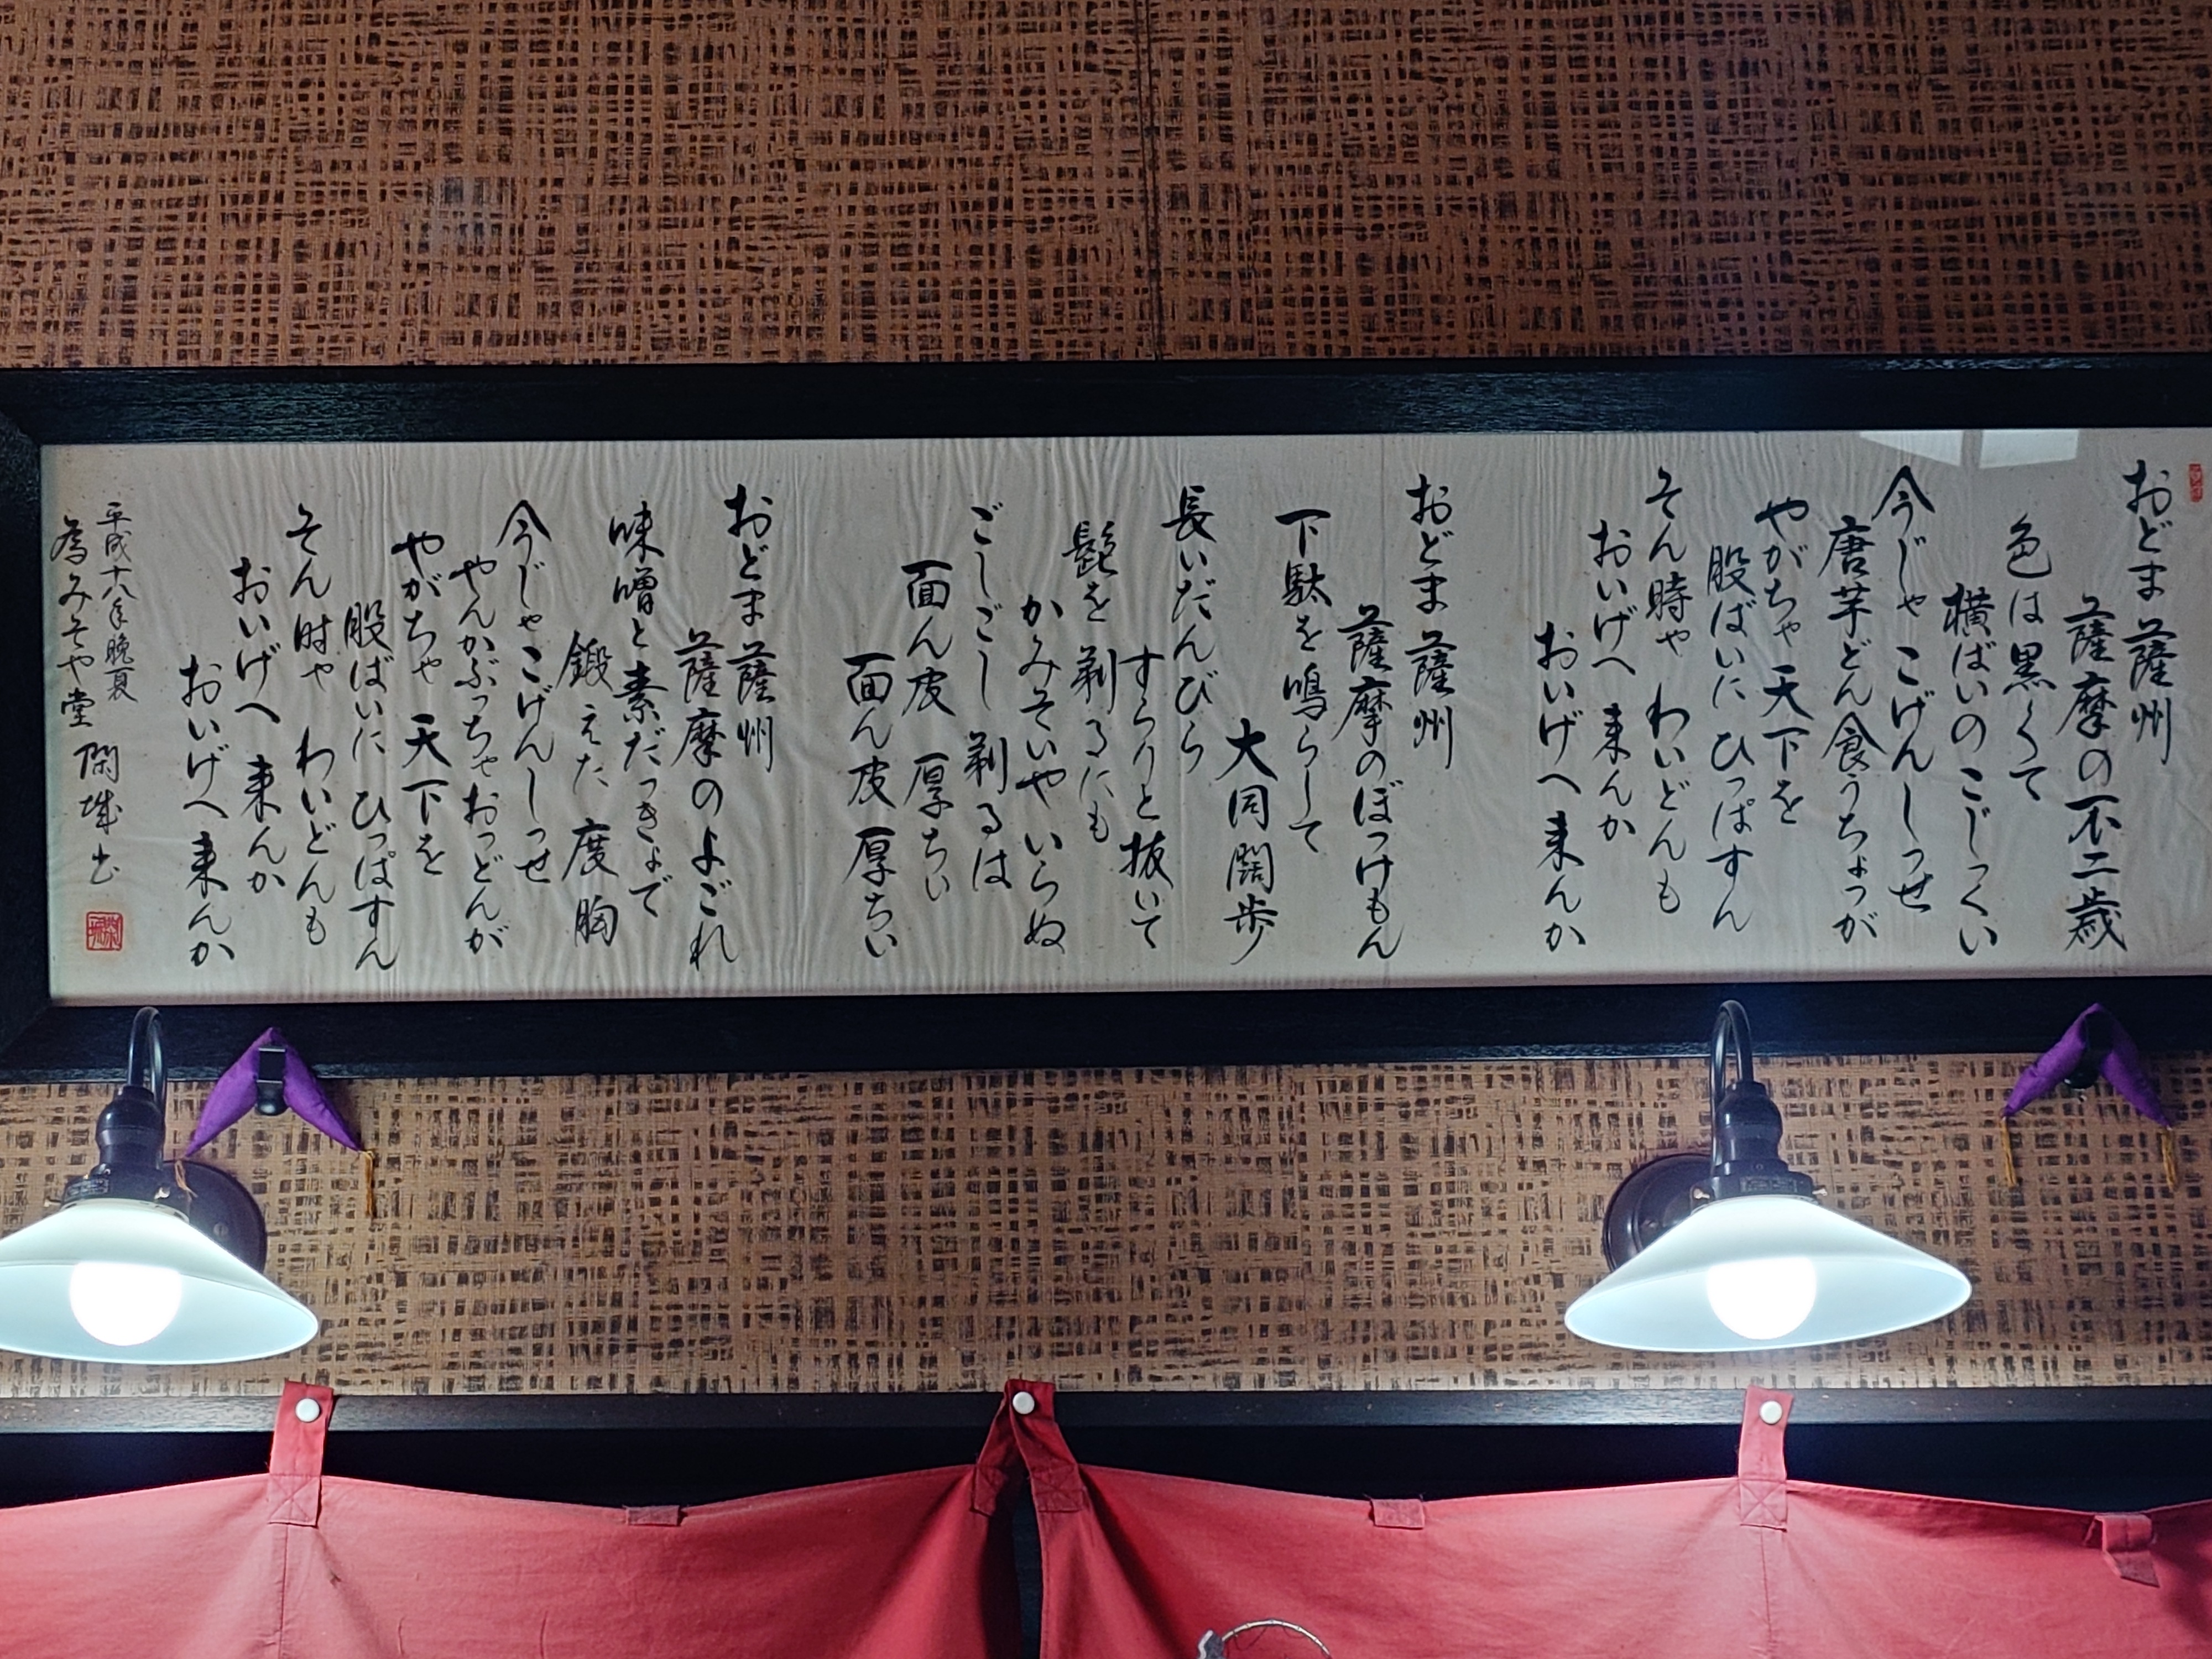 おどま薩州
薩摩の不二歳
色は黒くて
横ばいのこじっくい
今じゃこげんしっせ
唐芋どん食うちょっが
やがちゃ天下を
股ばいにひっぱすん
そん時ゃわいどんも
おいげへ来んか
おいげへ来んか
おどま薩州
薩摩のぼっけもん
下駄を鳴らして
大同闊歩
長いだんびら
すらりと抜いて
髭を剃るにも
かみそいやいらぬ
ごしごし剃るは
面ん皮厚ちい
面ん皮厚ちい
おどま薩州
薩摩のよごれ
味噌と素だっきょで
鍛えた度胸
今じゃこげんしっせ
やんかぶっちゃおっどんが
やがちゃ天下を
股ばいにひっぱすん
そん時ゃわいどんも
おいげへ来んか
おいげへ来んか
平成十八年晩夏
為みそや堂